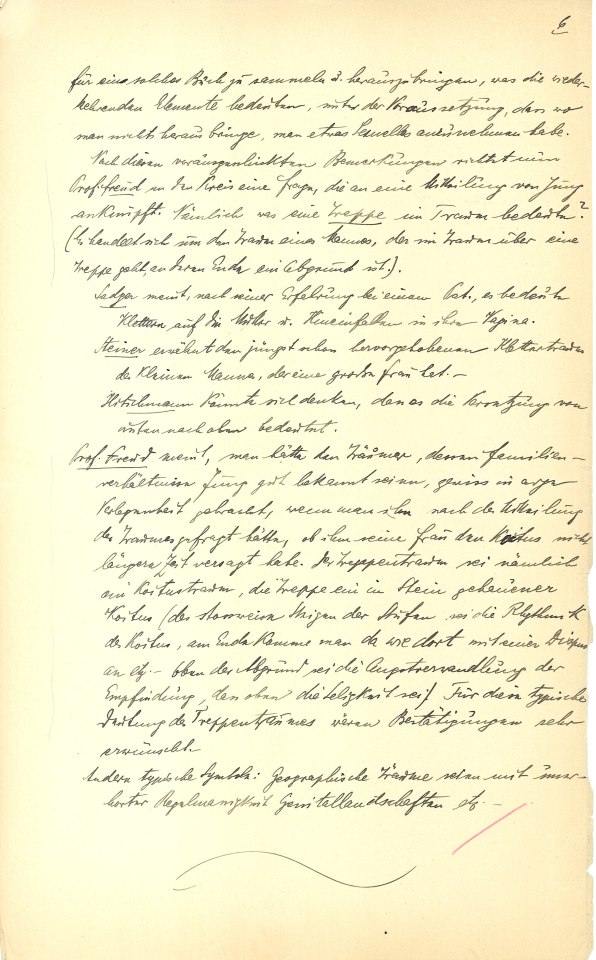 6
für eine solches Buch zu sammeln u. herauszubringen, was die wieder-
kehrenden Elemente bedeuten, unter der Voraussetzung, dass wo
man nichts heraus bringe, man etwas Sexuelles anzunehmen habe.
Nach diesen vorausgeschickten Bemerkungen richtet nun
Prof. Freud an den Kreis eine Frage, die an eine Mitteilung von Jung
anknüpft. Nämlich was eine Treppe im Traum bedeute?
(Es handelt sich um den Traum eines Mannes, der im Traum über eine
Treppe geht, an deren Ende ein Abgrund ist.).
Sadger meint, nach seiner Erfahrung bei einem Pat., es bedeute
Klettern auf die Mutter u. Hineinfallen in ihre Vagina.
Steiner erwähnt den jüngst schon hervorgehobenen Klettertraum
des kleinen Mannes, der eine grosse Frau hat. –
Hitschmann könnte sich denken, dass es die Versetzung von
unten nach oben bedeutet.
Prof. Freud meint, man hätte den Träumer, dessen Familien-
verhältnisse Jung gut bekannt seien, gewiss in arge
Verlegenheit gebracht, wenn man ihn nach der Mitteilung
des Traumes gefragt hätte, ob ihm seine Frau den Koitus nicht
längere Zeit versagt habe. Der Treppentraum sei nämlich
ein Koitustraum, die Treppe ein in Stein gehauener
Koitus (das stossweise Steigen der Stufen sei die Rhythmik
des Koitus, am Ende komme man da wie dort mit einer Dispnoe
an etz. – oben der Abgrund sei die Angstverwandlung der
Empfindung, dass oben die Seligkeit sei) Für diese typische
Deutung des Treppentraumes wären Bestätigungen sehr
erwünscht.
Andere typische Symbole: Geographische Träume seien mit uner-
hörter Regelmässigkeit Genitallandschaften etz. –